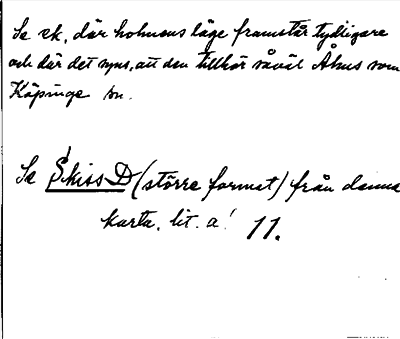 Se ek. där holmens läge framstår tydligare
och där det syns, att den tillhör såväl Åhus som
Köpinge sn.
Se Skiss D (större format) från denna
karta, lit. a! 11.